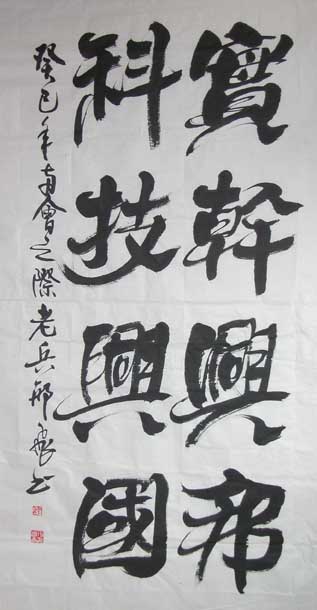 實幹興邦
科技興國
癸巳年両會之際老兵邢泉书